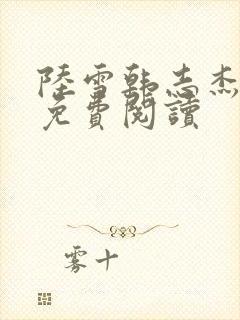 陸雪韓志杰
免費閱讀
雾十